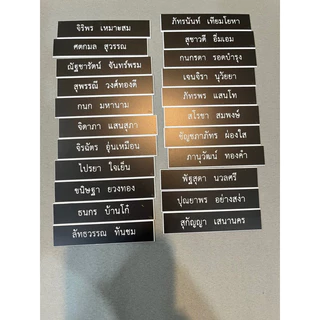 จิริพร เหมาะสม
ศตกมล สุวรรณ
ณัฐชารัตน์ จันทร์พรม
สุพรรณี วงศ์ทองดี
กนก มหานาม
จิดาภา แสนสุภา
จิรฉัตร อุ่นเหมือน
ไปรยา ใจเย็น
ชนิษฐา ยวงทอง
ธนกร บ้านโก๋
ลัทธวรรณ ทันชม
ภัทรนันท์ เทียมโยหา
สุชาวดี อิ่มเอม
กนกรดา รอดบำรุง
เจนจิรา นุวัยยา
ภัทรพร แสนโท
สโรชา สมพงษ์
ชัญชภาภัทร ผ่องใส
ภานุวัฒน์ ทองคำ
พัฐสุดา นวลศรี
ปุณยาพร อย่างสง่า
สุกัญญา เสนานคร